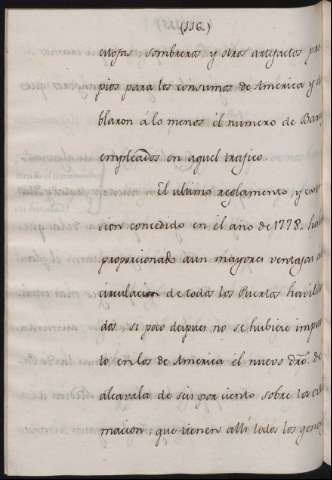 (116.)
estofas, sombreros, y otros artefactos pro
pios para los consumos de America y
blaron a lo menos el numero de Bar
empleados en aquel trafico.
El ultimo reglamento y con
sion concedido en el año de 1778.
proporcionado aun mayores ventajas
circulacion de todos los Puertos havilita
dos, si poco despues no se hubiere impues
to en los de America el nuevo dro. de
alcavala de seis por ciento sobre la esti
macion, que tienen alli todos los gene